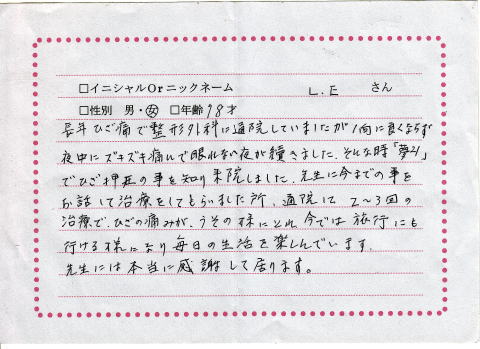 □イニシャルOrニックネーム L.E さん
□性別 男・女 □年齢 78才
長年ひざ痛で整形外科に通院していましたが一向に良くならず
夜中にズキズキ痛んで眠れない夜が続きました。そんな時「夢21」
でひざ押圧の事を知り来院しました。先生に今までの事を
お話して治療をしてもらいました所、通院して2〜3回の
治療で、ひざの痛みが、うその様にとれ今では旅行にも
行ける様になり毎日の生活を楽しんでいます。
先生には本当に感謝して居ります。